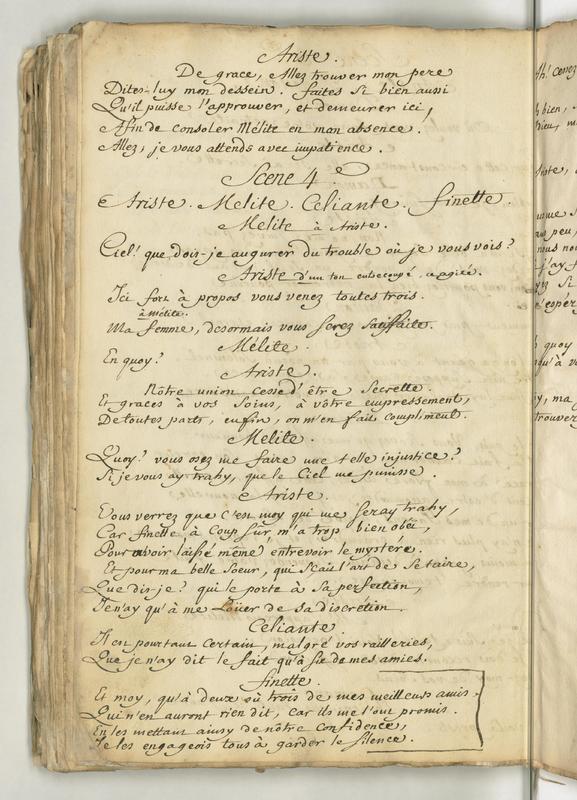 Ariste.
De grace, Allez trouver mon pere
Dites-luy mon dessein. faites si bien aussi
Qu'il puisse l'approuver, et demeurer ici,
Afin de consoler Mélite en mon absence.
Allez, je vous attends avec impatience.
Scene 4.e
Ariste. Melite. Celiante. finette.
Melite à Ariste.
Ciel! que dois-je augurer du trouble où je vous vois?
Ariste d'un ton entrecoupé, et agité.
Ici fort à propos vous venez toutes trois.
à Mélite.
Ma femme, desormais vous serez satisfaite.
Mélite.
En quoy?
Ariste.
Nôtre union cesse d'être secrette.
Et graces à vos soins, à vôtre empressement,
De toutes parts, enfin, on m'en fait compliment.
Melite.
Quoy? vous osez me faire une telle injustice?
Si je vous ay trahy, que le Ciel me punisse.
Ariste.
Vous verrez que c'est moy qui me seray trahy,
Car finette à Coup sûr, m'a trop bien obéi,
Pour avoir laissé même entrevoir le mystére.
Et pour ma belle Soeur, qui sçait l'art de se taire,
Que dis-je? qui le porte à sa perfection,
Je n'ay qu'à me Louer de sa discrétion.
Celiante.
Il est pourtant certain, malgré vos railleries,
Que je n'ay dit le fait qu'à six de mes amies.
finette.
Et moy, qu'à deux où trois de mes meilleurs amis.
Qui n'en auront rien dit, car ils me l'ont promis.
En les mettant aussy de nôtre confidence,
Je les engageois tous à garder le silence.
Ah! cenez
bien,
peu,
j'ay f
quoy
ma
trouver